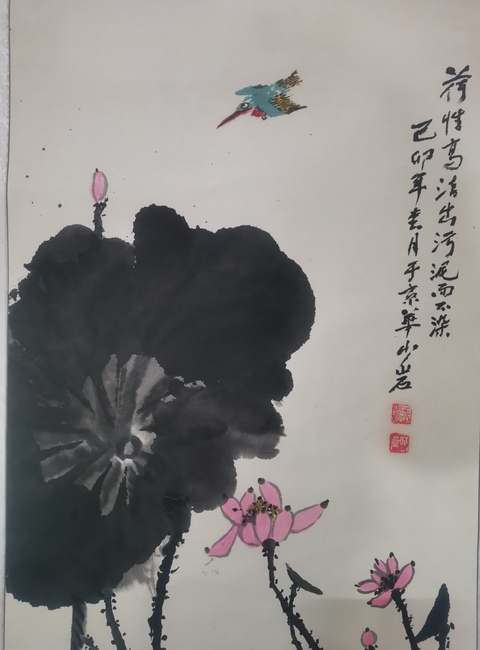 荷性高洁出污泥而不染
己卯年春月于京华小岩